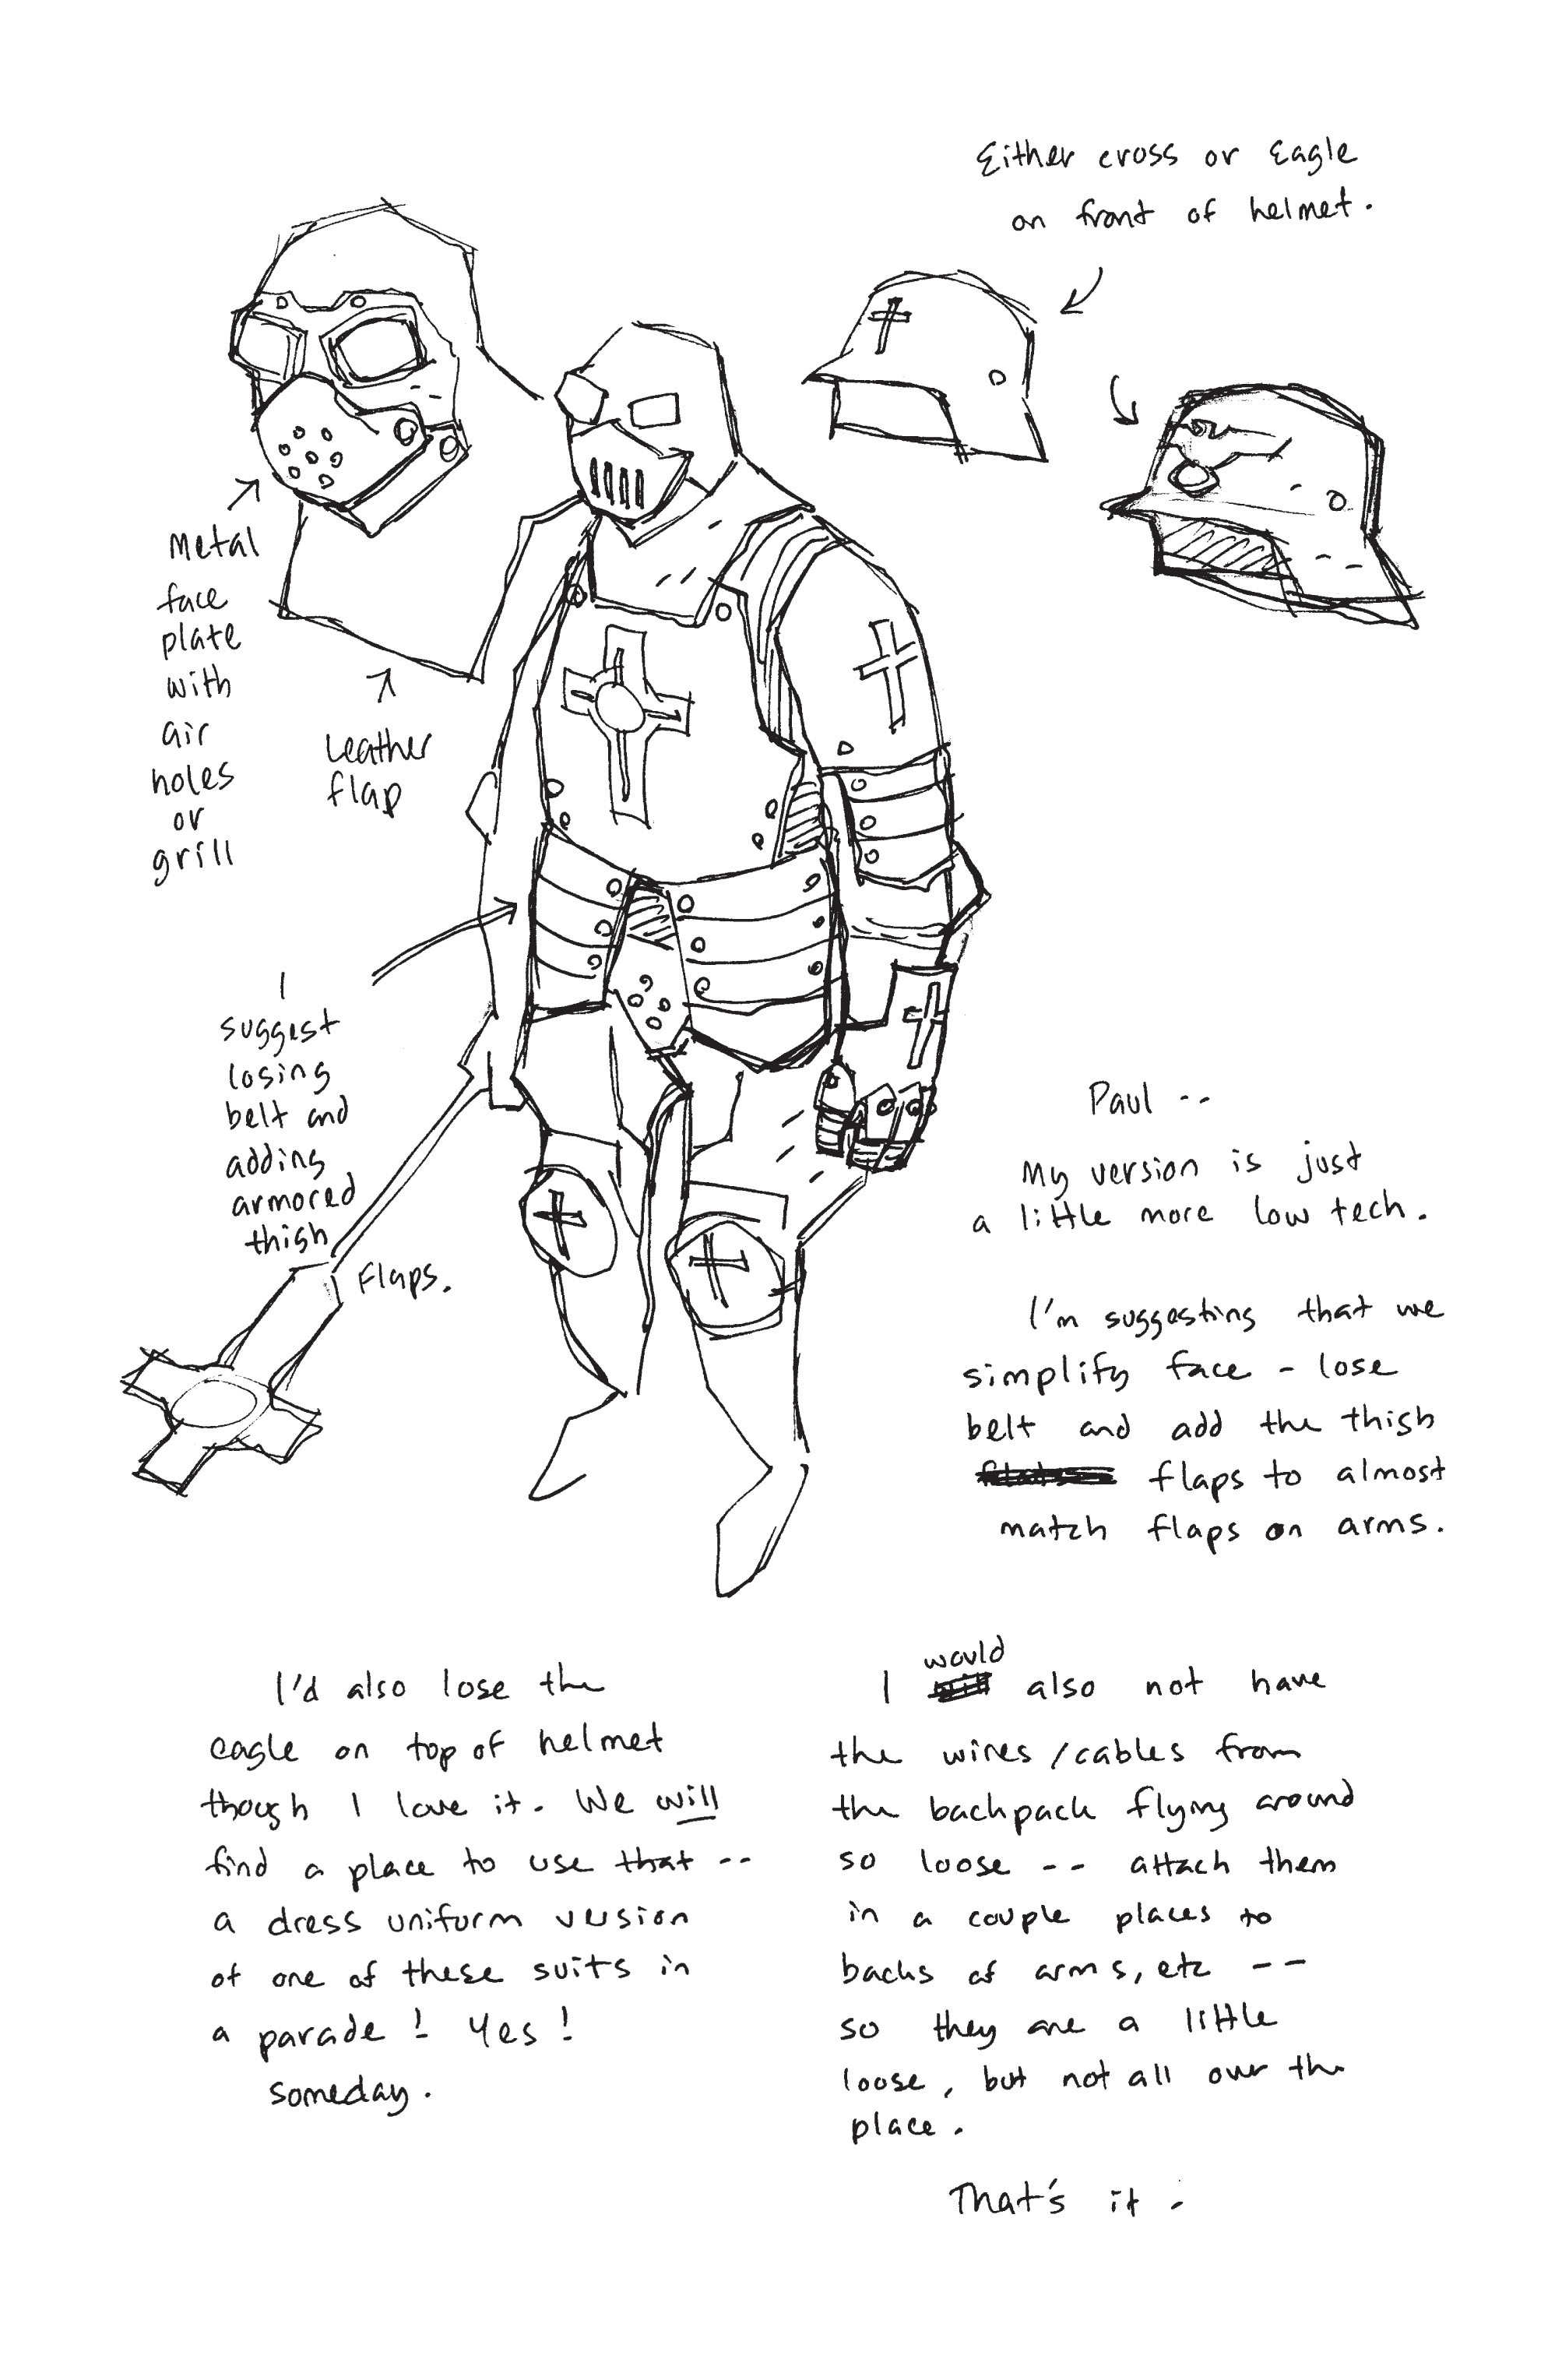 Either cross or Eagle
on front of helmet.
Metal
face
plate
with
air
holes
or
grill
Leather
flap
I
suggest
losing
belt and
adding
armored
thigh
Flaps.
Paul --
My version is just
a little more low tech.
I'm suggesting that we
simplify face - lose
belt and add the thigh
flaps to almost
match flaps on arms.
I'd also lose the
eagle on top of helmet
though I love it. We will
find a place to use that --
a dress uniform version
of one of these suits in
a parade! Yes!
someday.
I would also not have
the wires/cables from
the backpack flying around
so loose -- attach them
in a couple places to
backs of arms, etc --
so they are a little
loose, but not all over the
place.
That's it -